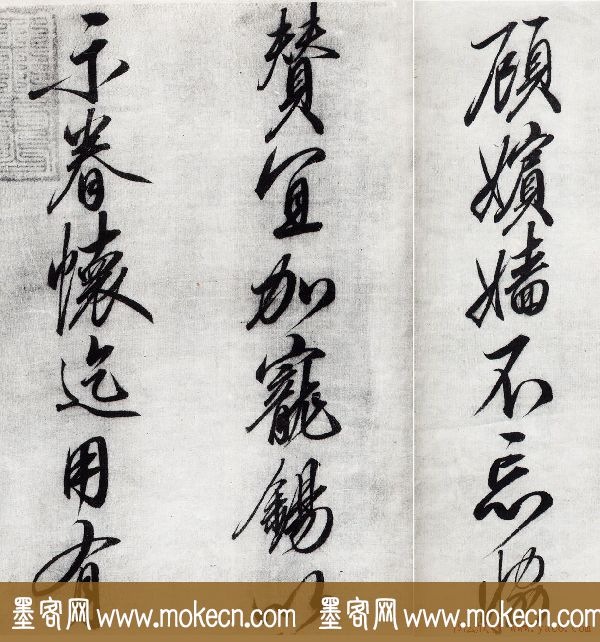 顧嬪嬙不忘
贊宜加寵錫以
示眷懷迄用有
墨客网 www.mokecn.com 墨客网 www.mokecn.com